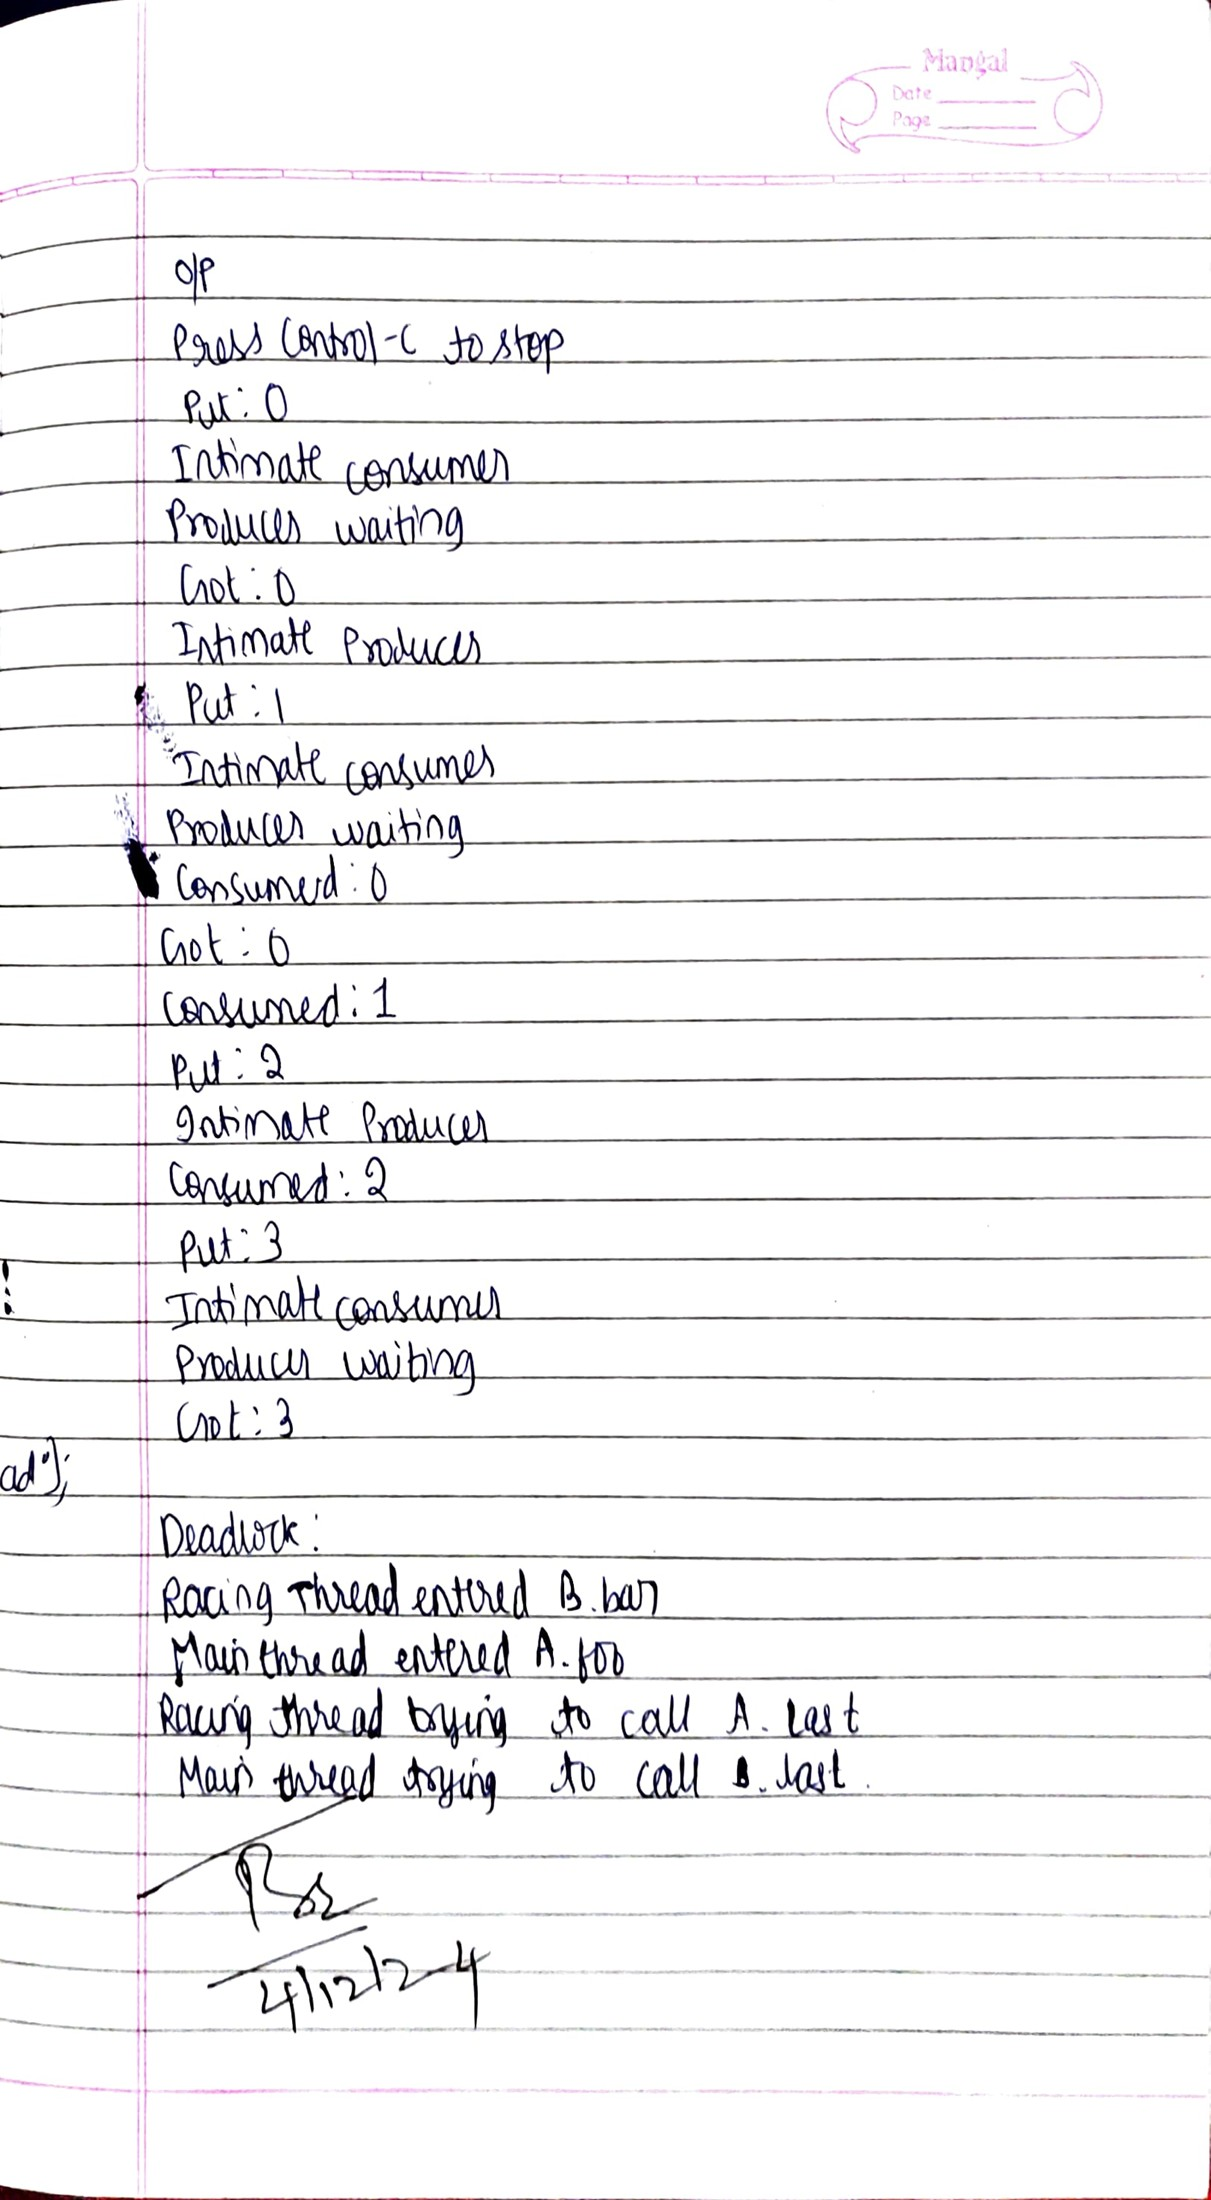 Mangal
Date
Page
O/P
Press Control-C to stop
Put: 0
Intimate consumer
Producer waiting
Got: 0
Intimate Producer
Put: 1
Intimate consumer
Producer waiting
Consumed: 0
Got: 0
Consumed: 1
Put: 2
Intimate Producer
Consumed: 2
Put: 3
Intimate consumer
Producer waiting
Got: 3
ad");
Deadlock:
Racing Thread entered B.bar
Main thread entered A.foo
Racing thread trying to call A. Last
Main thread trying to call B. last.
4/12/24